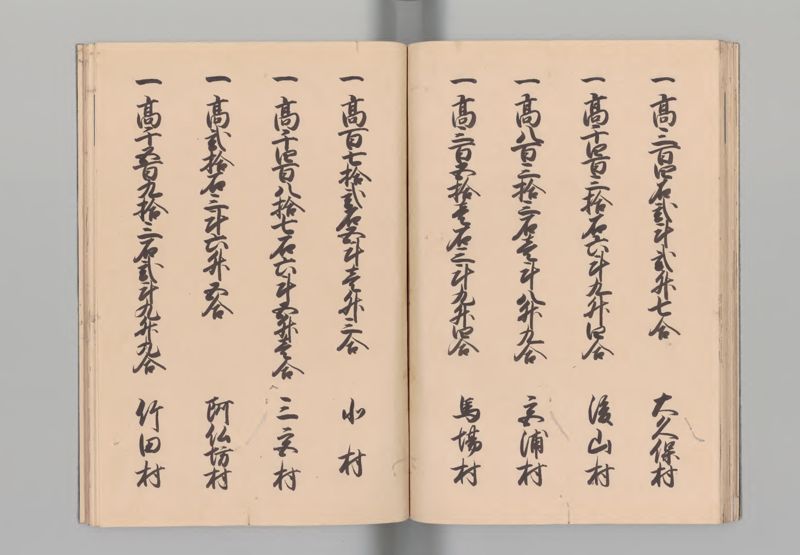 一高三百四石弐斗弐升七合 大久保村
一高千四百三拾石六斗九升四合 後山村
一高八百三拾三石壱斗八升九合 宮浦村
一高三百五拾壱石三斗九升四合 馬場村
一高百七拾弐石五斗壱升三合 北村
一高千四百八拾七石六斗五升壱合 三宮村
一高弐拾石三斗六升五合 阿仏坊村
一高千五百九拾三石弐斗九升九合 竹田村